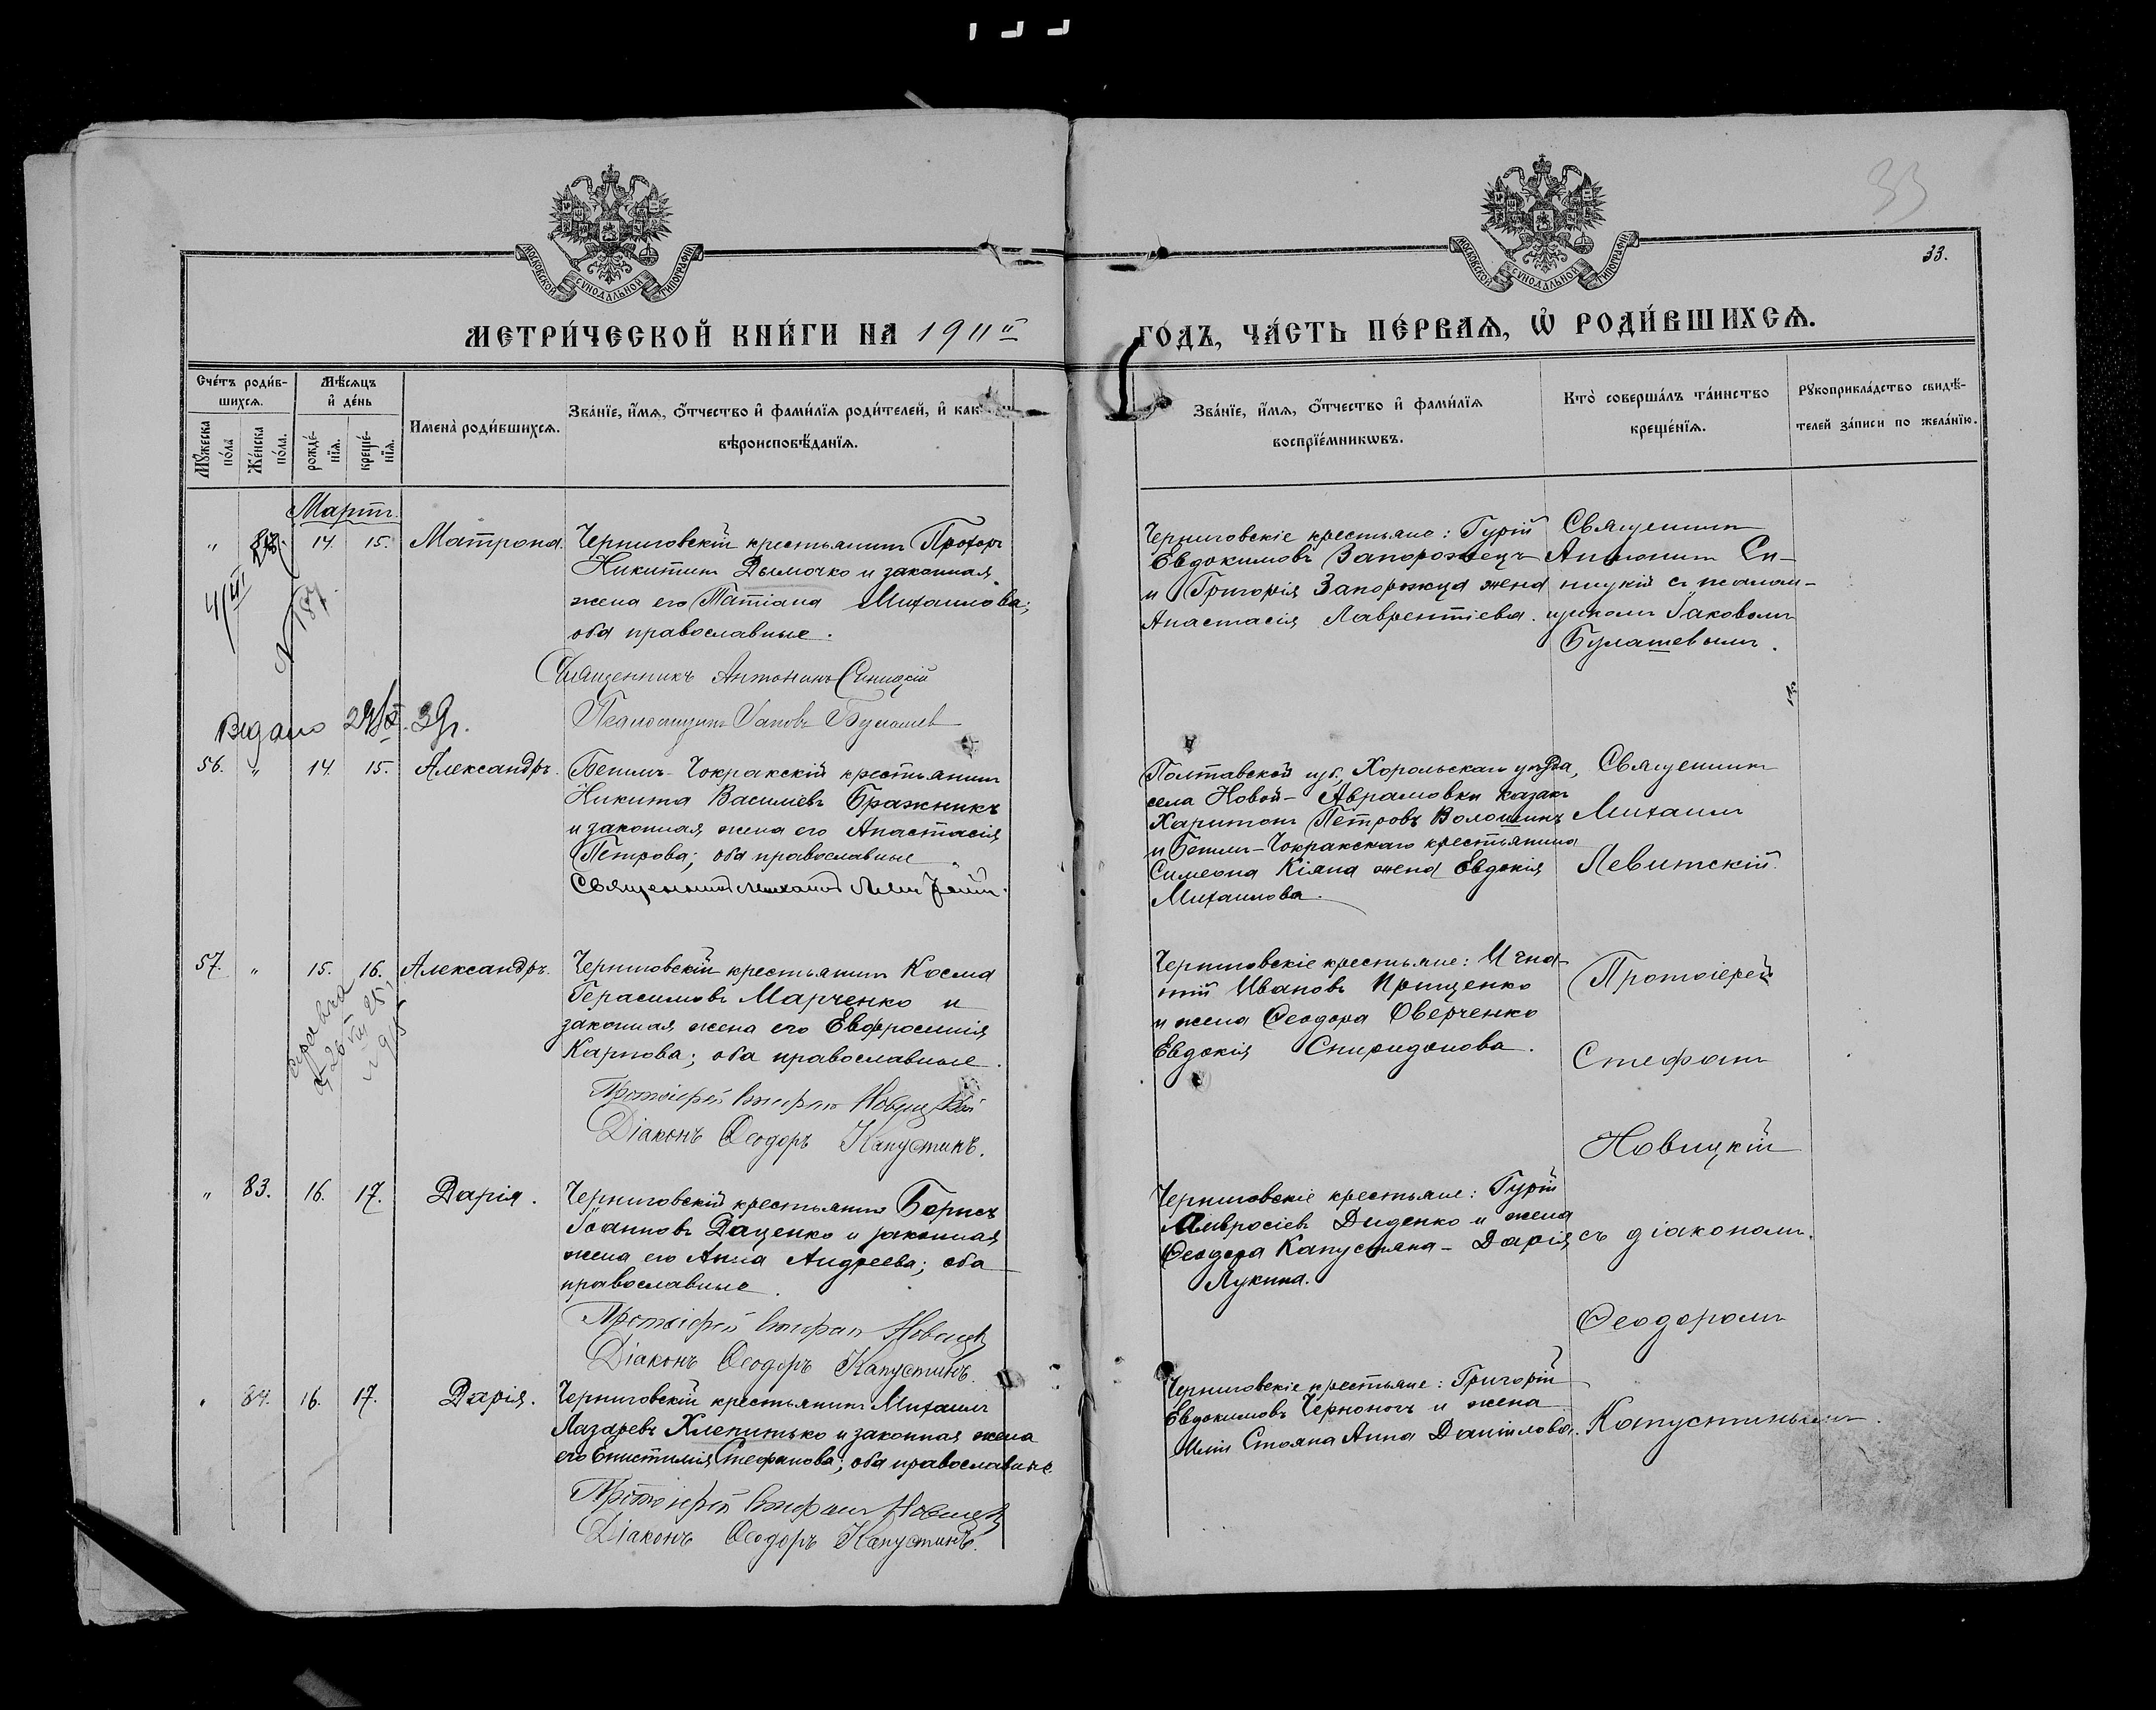 33
33.
МОСКОВСКОЙ СѴНОДАЛЬНОЙ ТИПОГРАФІИ
МОСКОВСКОЙ СѴНОДАЛЬНОЙ ТИПОГРАФІИ
МЕТРИ́ЧЕСКОЙ КНИ́ГИ НА 1911
ГО́ДЪ, ЧА́СТЬ ПЕ́РВАѦ, Ѡ҆ РОДИ́ВШИХСѦ.
Сче́тъ роди́в-
шихсѧ.
Мꙋжеска по́ла
Же́нска по́ла.
Мѣ́сѧцъ
и҆ де́нь
рожде́-
нїѧ.
креще́-
нїѧ.
Имена̀ роди́вшихсѧ.
Зва́нїе, и҆́мѧ, ѻ҆́тчество и҆ фами́лїѧ роди́телей, и҆ как
вѣроисповѣ́данїѧ.
Зва́нїе, и҆́мѧ, ѻ҆́тчество и҆ фами́лїѧ
воспрїе́мникѡвъ.
Кто̀ соверша́лъ та́инство
креще́нїѧ.
Рꙋкоприкла́дство свидѣ́-
телей за́писи по жела́нїю.
Мартъ.
" 14. 15. Матрона.
Черниговскій крестьянинъ Прохоръ
Никитинъ Дымочко и законная
жена его Татіана Михаилова;
оба православные.
Священникъ Антонинъ Синицкій
Псаломщикъ Іаковъ Булашев
N 187.
Видано
39г.
Черниговскіе крестьяне: Гурій
Евдокимовъ Запорожецъ
и Григорія Запорожца жена
Анастасія Лаврентіева.
Священникъ
Антонинъ Си-
ницкій съ псалом-
щикомъ Іаковомъ
Булашевымъ.
56. " 14. 15. Александръ.
Бешлъ-Чокракскій крестьянинъ
Никита Василіевъ Бражникъ
и законная жена его Анастасія
Петрова; оба православные
Священникъ Михаилъ
Полтавской губ., Хорольскаго уѣзда,
села Новой-Аврамовки казакъ
Харитонъ Петровъ Волошинъ
и Бешлъ-Чокракскаго крестьянина
Симеона Кіяна жена Евдокія
Михаилова.
Священникъ
Михаилъ
Левитскій.
57. " 15. 16. Александръ.
Черниговскій крестьянинъ Косма
Герасимовъ Марченко и
законная жена его Евфросинія
Карпова; оба православные.
Протоіерей Стефанъ Новицкій
Діаконъ Ѳеодоръ Капустинъ.
справка
Черниговскіе крестьяне: Игна-
тій Ивановъ Прищенко
и жена Ѳеодора Оверченко
Евдокія Спиридонова.
Протоіерей
Стефанъ
Новицкій
съ діакономъ
Ѳеодоромъ
Капустинымъ.
" 83. 16. 17. Дарія.
Черниговскій крестьянинъ Борисъ
Іоанновъ Даценко и законная
жена его Анна Андреева; оба
православные.
Протоіерей Стефанъ Новицкій
Діаконъ Ѳеодоръ Капустинъ.
Черниговскіе крестьяне: Гурій
Амвросіевъ Диденко и жена
Ѳеодора Капустяна - Дарія
Лукина.
" 84. 16. 17. Дарія.
Черниговскій крестьянинъ Михаилъ
Лазаревъ Хлепитько и законная жена
его Епистимія Стефанова; оба православные.
Протоіерей Стефанъ Новицкій
Діаконъ Ѳеодоръ Капустинъ.
Черниговскіе крестьяне: Григорій
Евдокимовъ Черноногъ и жена
Иліи Стояна Анна Даніилова.